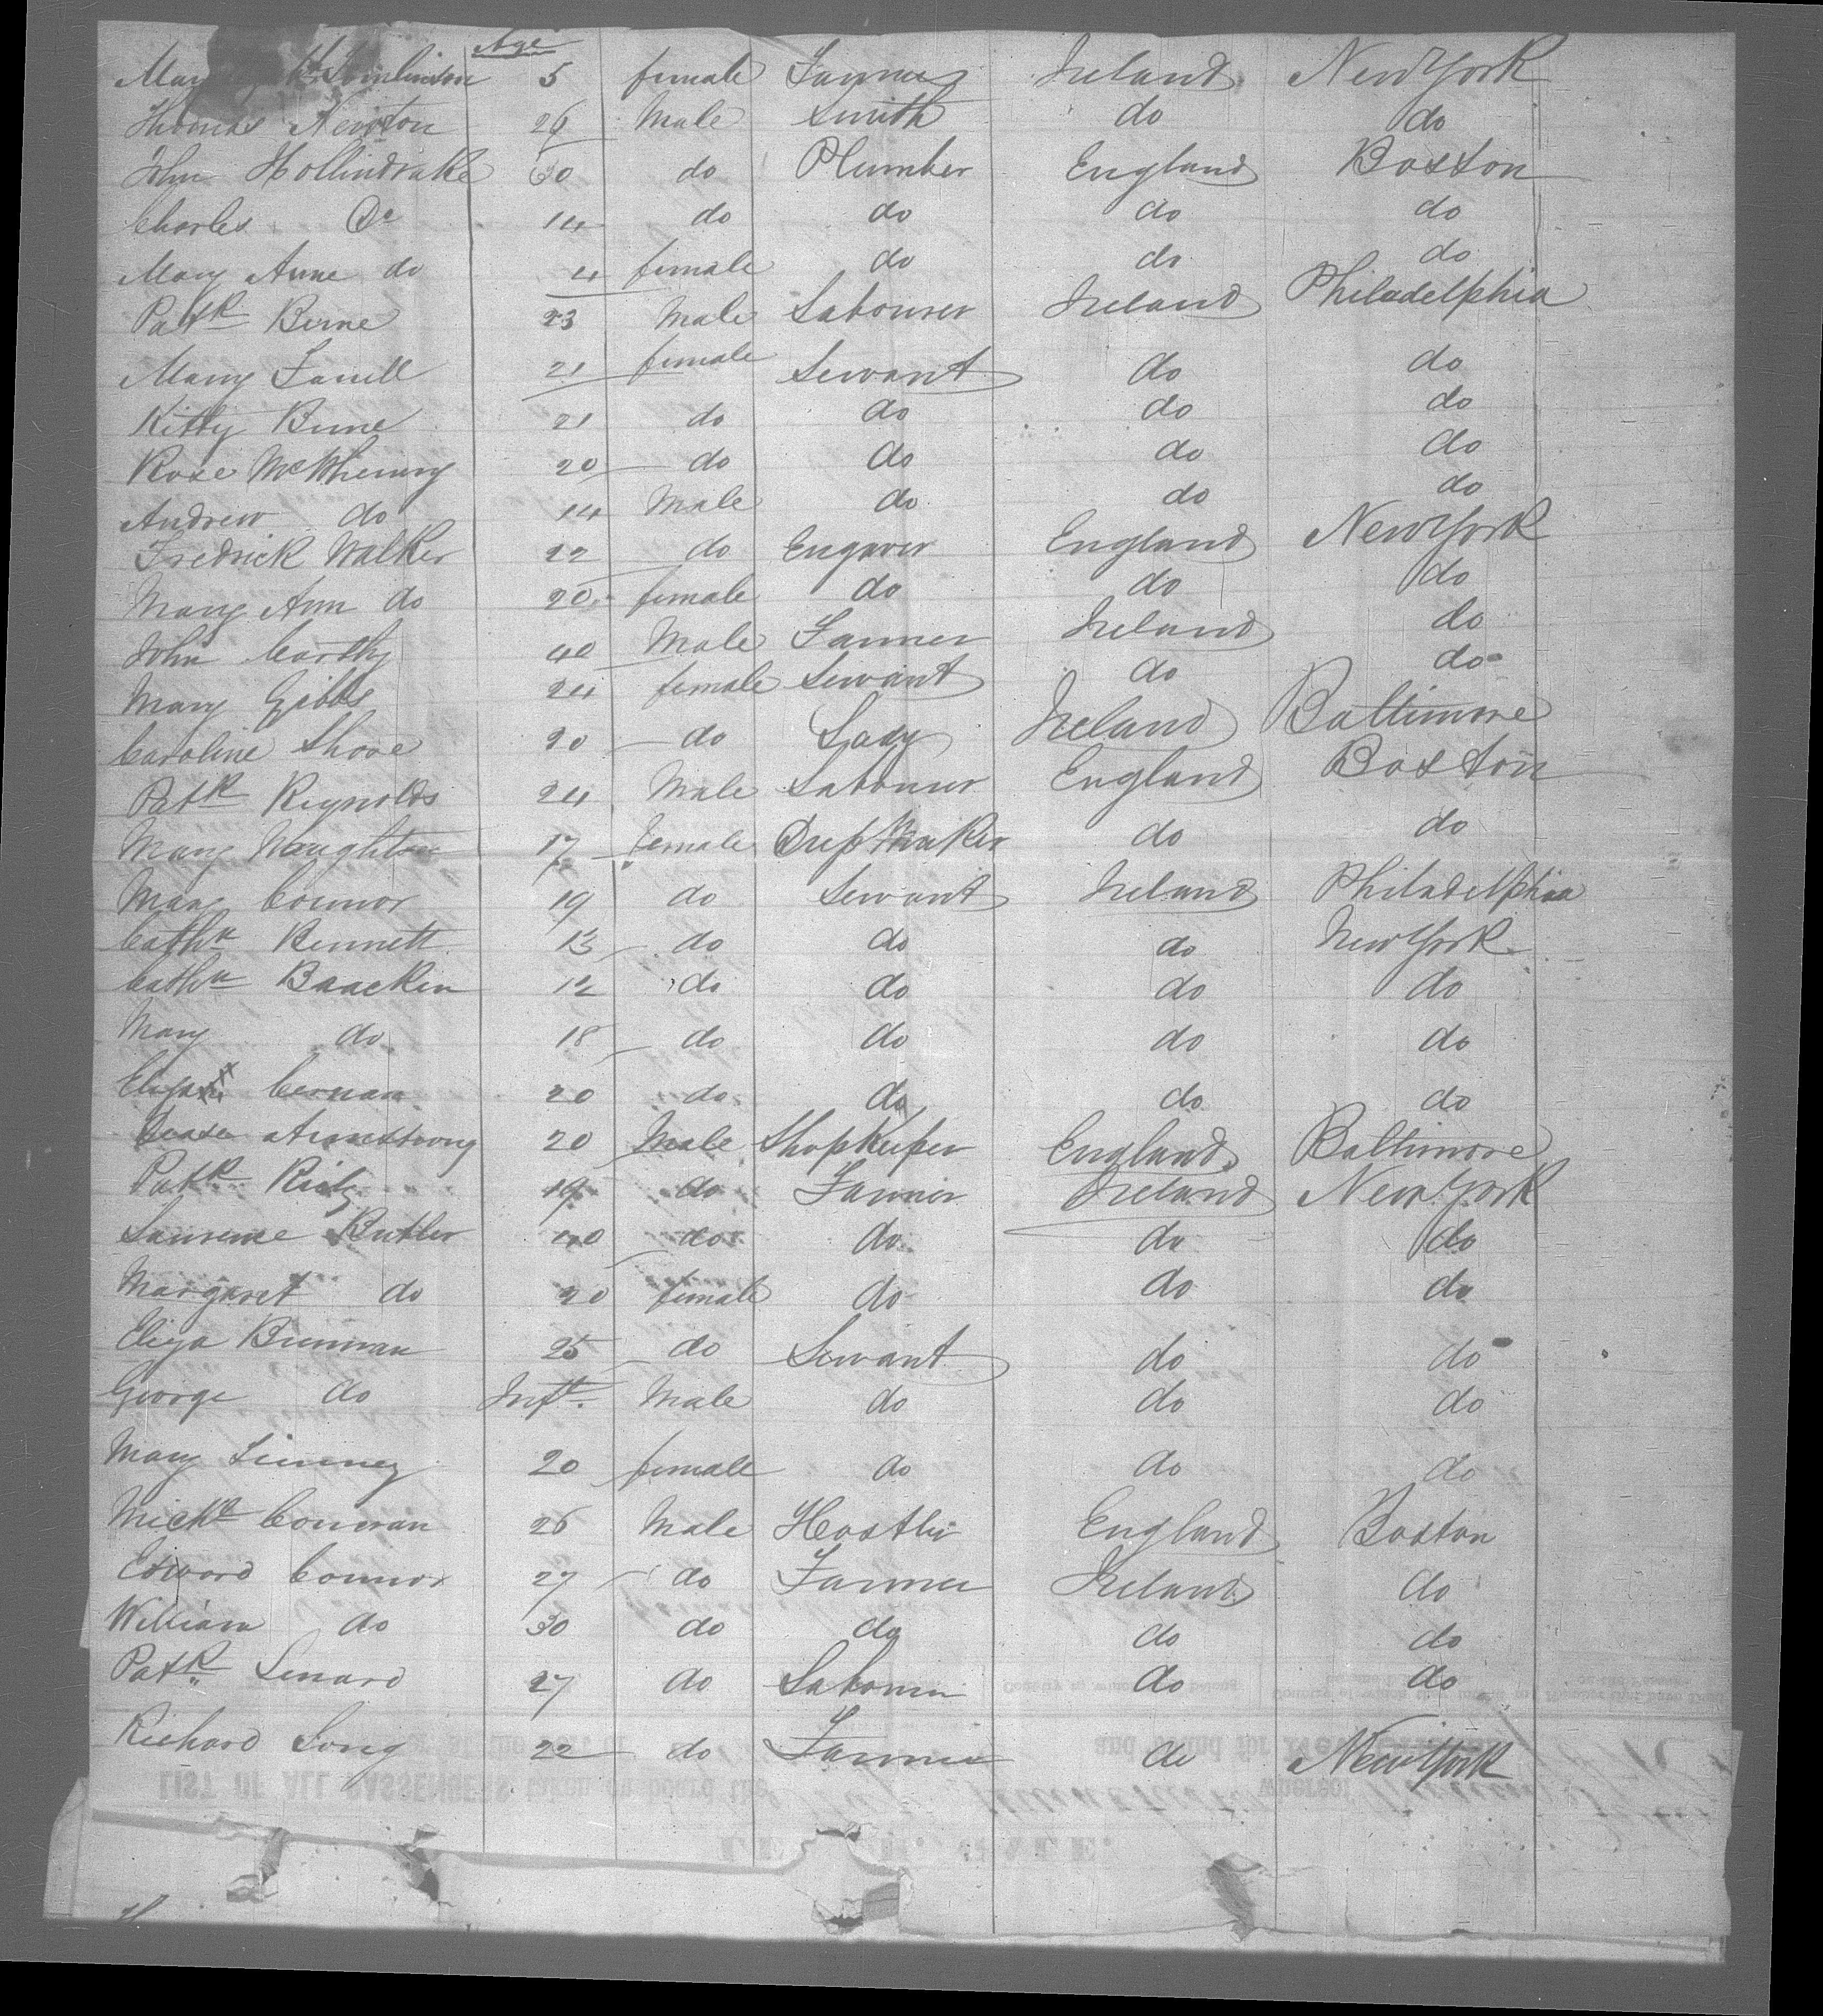 Age
Mary Tomlinson 5 female Farmer Ireland New York
Thomas Newton 26 Male Smith do do
John Hollindrake 60 do Plumber England Boston
Charles Do 14 do do do do
Mary Anne do 4 female do do do
Patk Birne 23 Male Labourer Ireland Philadelphia
Mary Farrell 21 female Servant do do
Kitty Birne 21 do do do do
Rose 20 do do do do
Andrew do 14 Male do do do
Fredrick Walker 22 do Engaver England New York
Mary Ann do 20 female do do do
John Carthy 40 Male Farmer Ireland do
Mary Gibbs 24 female Servant do do
Caroline Shore 20 do Lady Ireland Baltimore
Patk Reynolds 24 Male Labourer England Boston
Mary Naughton 17 female Dress Maker do do
Mary Connor 19 do Servant Ireland Philadelphia
Cathn Bennett 13 do do do New York
Cathn Braacken 12 do do do do
Mary do 18 do do do do
Cernan 20 do do do do
Armstrong 20 Male Shopkeeper England Baltimore
Patk Rily 19 do Farmer Ireland New York
Laurence Butler 40 do do do do
Margaret do 20 female do do do
Eliza Brennan 25 do Servant do do
George do Inft. Male do do do
Mary 20 female do do do
Michl Conoran 26 Male Hostler England Boston
Edward Connor 27 do Farmer Ireland do
William do 30 do do do do
Patk Lenard 27 do Labourer do do
Richard Long 22 do Farmer do New York
LIST OF ALL PASSENGERS taken on board the